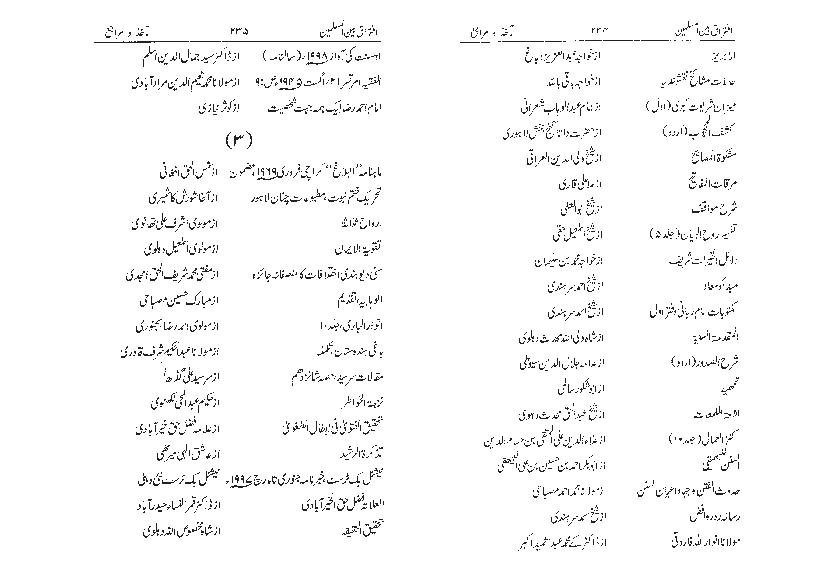 افتراق بین المسلمین ۲۳۴ مآخذ و مراجع
الابریز از خواجہ عبدالعزیز دباغ
حالات مشائخ نقشبندیہ از خواجہ باقی باللہ
میزان شریعت کبریٰ (اول) از امام عبدالوہاب شعرانی
کشف المحجوب (اردو) از حضرت داتا گنج بخش لاہوری
مشکوٰۃ المصابیح از شیخ ولی الدین العراقی
مرقات المفاتیح از ملا علی قاری
شرح مواقف از شیخ ابوالعلی
تفسیر روح البیان (جلد ۵) از شیخ اسمٰعیل حقی
دلائل الخیرات شریف از خواجہ محمد بن سلیمان
مبدا و معاد از شیخ احمد سرہندی
مکتوبات امام ربانی دفتر اول از شیخ احمد سرہندی
المقدمۃ السنیۃ از شاہ ولی اللہ محدث دہلوی
شرح الصدور (اردو) از علامہ جلال الدین سیوطی
تمہید از ابوشکور سالمی
اشعۃ اللمعات از شیخ عبدالحق محدث دہلوی
کنز العمال (جلد ۱۰) از علاء الدین علی المتقی بن حسام الدین
السنن للبیہقی از ابوبکر احمد بن حسین بن علی البیہقی
حدوث الفتن و جہاد اعیان السنن از مولانا محمد احمد مصباحی
رسالہ رد روافض از شیخ احمد سرہندی
مولانا انوار اللہ فاروقی از ڈاکٹر کے محمد عبدالحمید اکبر
افتراق بین المسلمین ۲۳۵ مآخذ و مراجع
اہلسنت کی آواز ۱۹۹۸ء (سالنامہ) از ڈاکٹر سید جمال الدین اسلم
الفقیہ امرتسر ۲۱/اگست ۱۹۴۵ء ص:۹ از مولانا محمد نعیم الدین مرادآبادی
امام احمد رضا ایک ہمہ جہت شخصیت از کوثر نیازی
(۳)
ماہنامہ "البلاغ" کراچی فروری ۱۹۶۹ء مضمون از شمس الحق افغانی
تحریک ختم نبوت مطبوعات چٹان لاہور از آغا شورش کاشمیری
ارواح ثلاثہ از مولوی اشرف علی تھانوی
تقویۃ الایمان از مولوی اسمٰعیل دہلوی
سنی دیوبندی اختلافات کا منصفانہ جائزہ از مفتی محمد شریف الحق امجدی
الوہابیہ القدیم از مبارک حسین مصباحی
انوار الباری جلد ۱۰ از مولوی احمد رضا بجنوری
باغی ہندوستان تکملہ از مولانا عبدالحکیم شرف قادری
مقالات سرسید حصہ شانزدہم از سرسید علی گڈھ
نزہۃ الخواطر از حکیم عبدالحی لکھنوی
تحقیق الفتویٰ فی ابطال الطغویٰ از علامہ فضل حق خیرآبادی
تذکرۃ الرشید از عاشق الٰہی میرٹھی
نیشنل بک ٹرسٹ خبرنامہ جنوری تا مارچ ۱۹۹۷ء نیشنل بک ٹرسٹ نئی دہلی
العلامۃ فضل حق الخیرآبادی از ڈاکٹر قمر النساء حیدرآباد
تحقیق الحقیقہ از شاہ مخصوص اللہ دہلوی